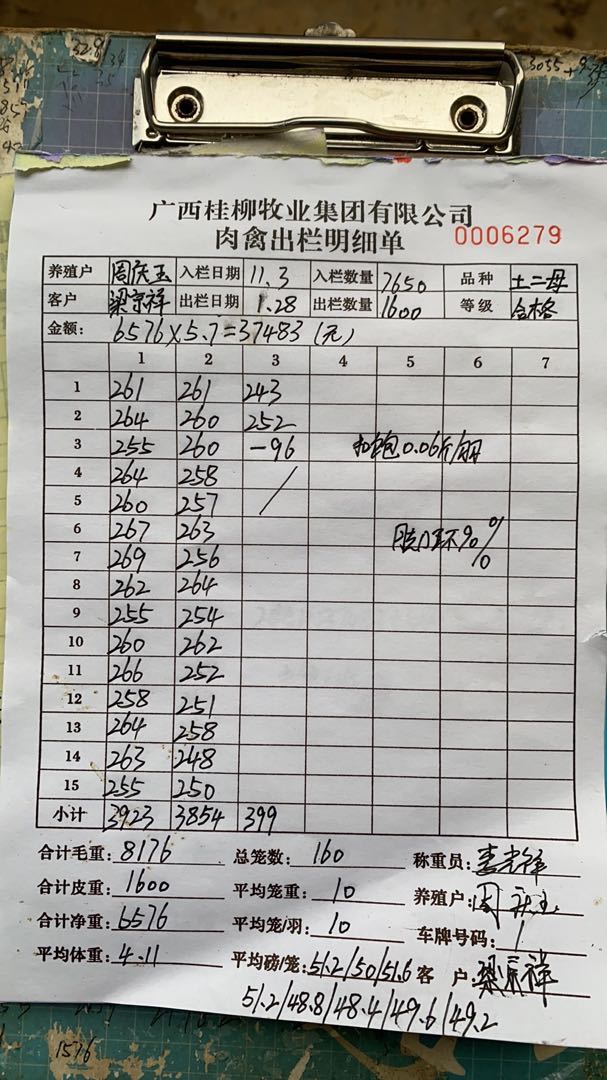 广西桂柳牧业集团有限公司
肉禽出栏明细单 0006279
养殖户 周庆玉 入栏日期 11.3 入栏数量 7650 品种 土二母
客户 梁京祥 出栏日期 1.28 出栏数量 1600 等级 合格
金额: 6576×5.7=37483(元)
1 2 3 4 5 6 7
1 261 261 243
2 264 260 252
3 255 260 -96 扣饱0.06斤/羽
4 264 258 /
5 260 257
6 267 263
7 269 256
8 262 264
9 255 254
10 260 262
11 266 252
12 258 251
13 264 258
14 263 248
15 255 250
小计 3923 3854 399
合计毛重: 8176 总笼数: 160 称重员:
合计皮重: 1600 平均笼重: 10 养殖户: 周庆玉
合计净重: 6576 平均笼/羽: 10 车牌号码: 1
平均体重: 4.11 平均磅/笼: 51.2/50/51.6 客户: 梁京祥
51.2/48.8/48.4/49.6/49.2
1576